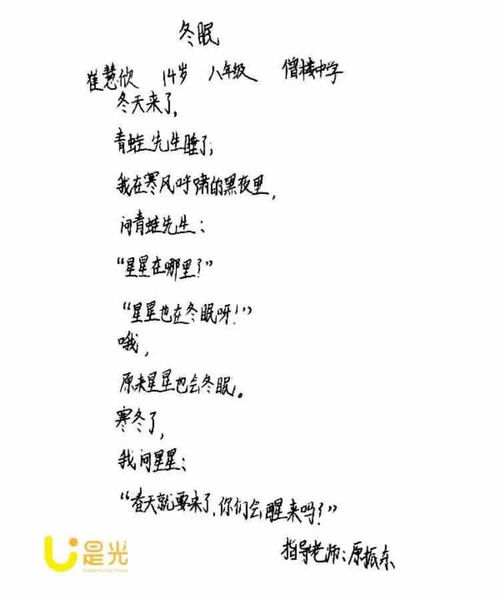 冬眠
崔慧欣 14岁 八年级 僧楼中学
冬天来了,
青蛙先生睡了;
我在寒风呼啸的黑夜里,
问青蛙先生:
“星星在哪里?”
“星星也在冬眠呀!”
哦,
原来星星也会冬眠。
寒冬了,
我问星星:
“春天就要来了,你们会醒来吗?”
指导老师:原振东
是光